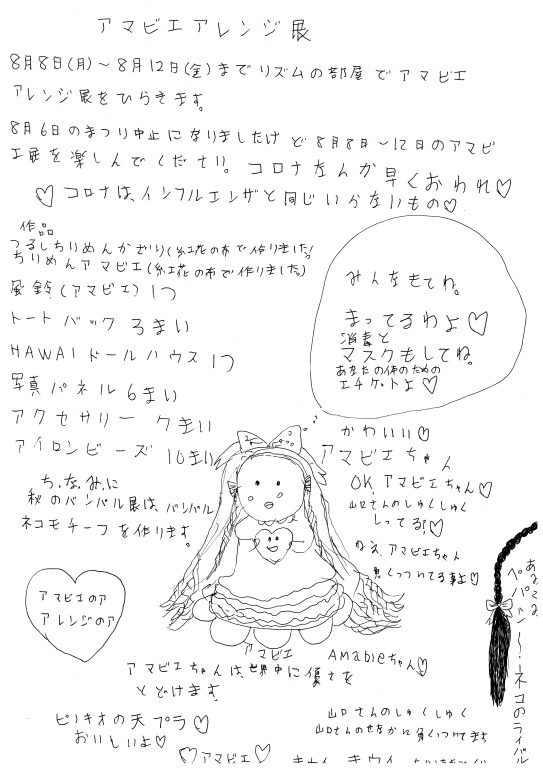 アマビエアレンジ展
8月8日(月)～8月12日(金)までリズムの部屋でアマビエ
アレンジ展をひらきます。
8月6日のまつり中止になりましたけど8月8日～12日のアマビ
エ展を楽しんでください。コロナなんか早くおわれ♡
♡コロナは、インフルエンザと同じいらないもの♡
作品
つるしちりめんかざり(紅花の布で作りました!
ちりめんアマビエ(紅花の布で作りました。)
風鈴(アマビエ)1つ
トートバック3まい
HAWAIドールハウス1つ
写真パネル6まい
アクセサリー7まい
アイロンビーズ10まい
みんなもてね。
まってるわよ♡
消毒と
マスクもしてね。
あなたの体のための
エチケットよ♡
かわいい♡
アマビエちゃん
OK.アマビエちゃん♡
山口さんのしゅくしゅく
しってる?♡
ねえ、アマビエちゃん
くっついてる事よ♡
ち.な.み.に
秋のバンバル展は、バンバル
ネコモチーフを作ります。
アマビエのア
アレンジのア
アマビエ
AMabieちゃん♡
アマビエちゃんは、世界中に優さを
とどけます
ピノキオの天プラ♡
おいしいよ♡
山口さんのしゅくしゅく
山口さんのせなかに
♡アマビエ♡
ネコのライバル